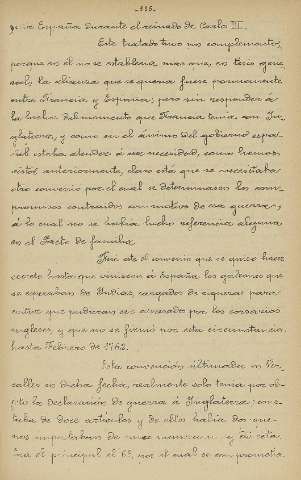 -115-
España durante el reinado de Carlos III.
Este tratado tuvo un complemento,
porque en él no se establecía más que, en tesis gene-
ral, la alianza que se quería fuese permanente
entre Francia y España; pero sin responder á
la lucha del momento que Francia tenía con In-
glaterra, y como en el ánimo del gobierno espa-
ñol estaba atender á esa necesidad, como hemos
visto anteriormente, claro está que se necesitaba
otro convenio por el cual se determinasen los com-
promisos contraidos con motivo de esa guerra, y
á lo cual no se había hecho referencia alguna
en el Pacto de familia.
Fué este el convenio que se quiso hacer
secreto hasta que viniesen á España los galeones que
se esperaban de Indias, cargados de riquezas para
evitar que pudieran ser apresados por los corsarios
ingleses, y que no se firmó por esta circunstancia
hasta Febrero de 1762.
Esta convención ultimada en Ver-
salles en dicha fecha, realmente solo tenía por ob-
jeto la declaración de guerra á Inglaterra: cons-
taba de doce artículos y de ellos había dos
el principal el 6º, por el cual se comprometía